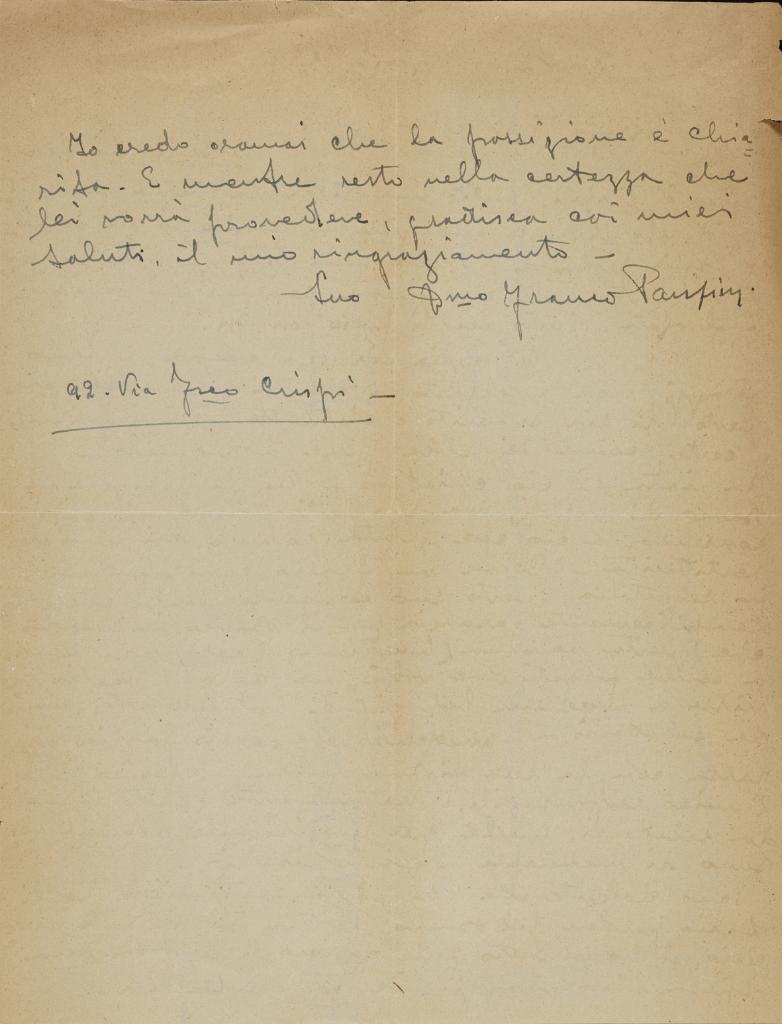 Io credo oramai che la possizione è chia=
rita. E mentre resto nella certezza che
lei vorrà provedere, gradisca coi miei
saluti, il mio ringraziamento –
Suo Dmo Franco
92. Via Fsco Crispi –